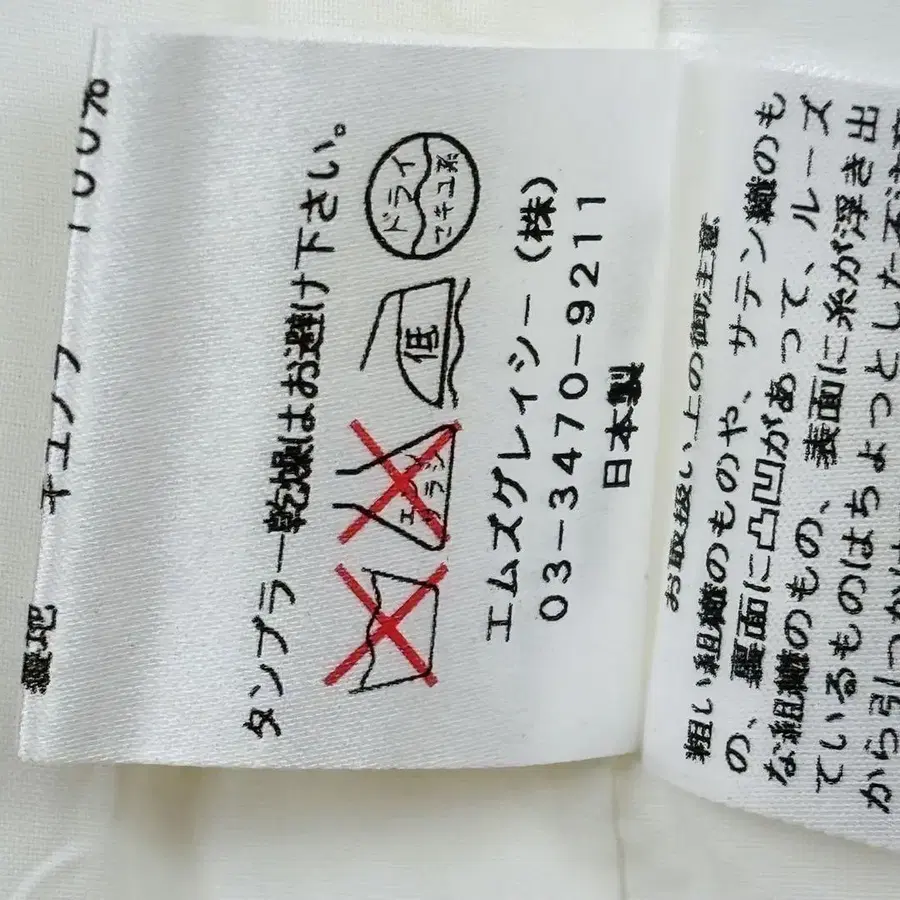 裏地 キュプラ 100%
タンブラー乾燥はお避け下さい。
エンソ サラシ 低 ドライ セキユ系
エムズグレイシー(株)
03-3470-9211
日本製
お取扱い上の御注意
粗い組織のものや、サテン織のも
の、裏面に凸凹があって、ルーズ
な組織のもの、表面に糸が浮き出
ているものはちょっとした不注意
から引っかけ